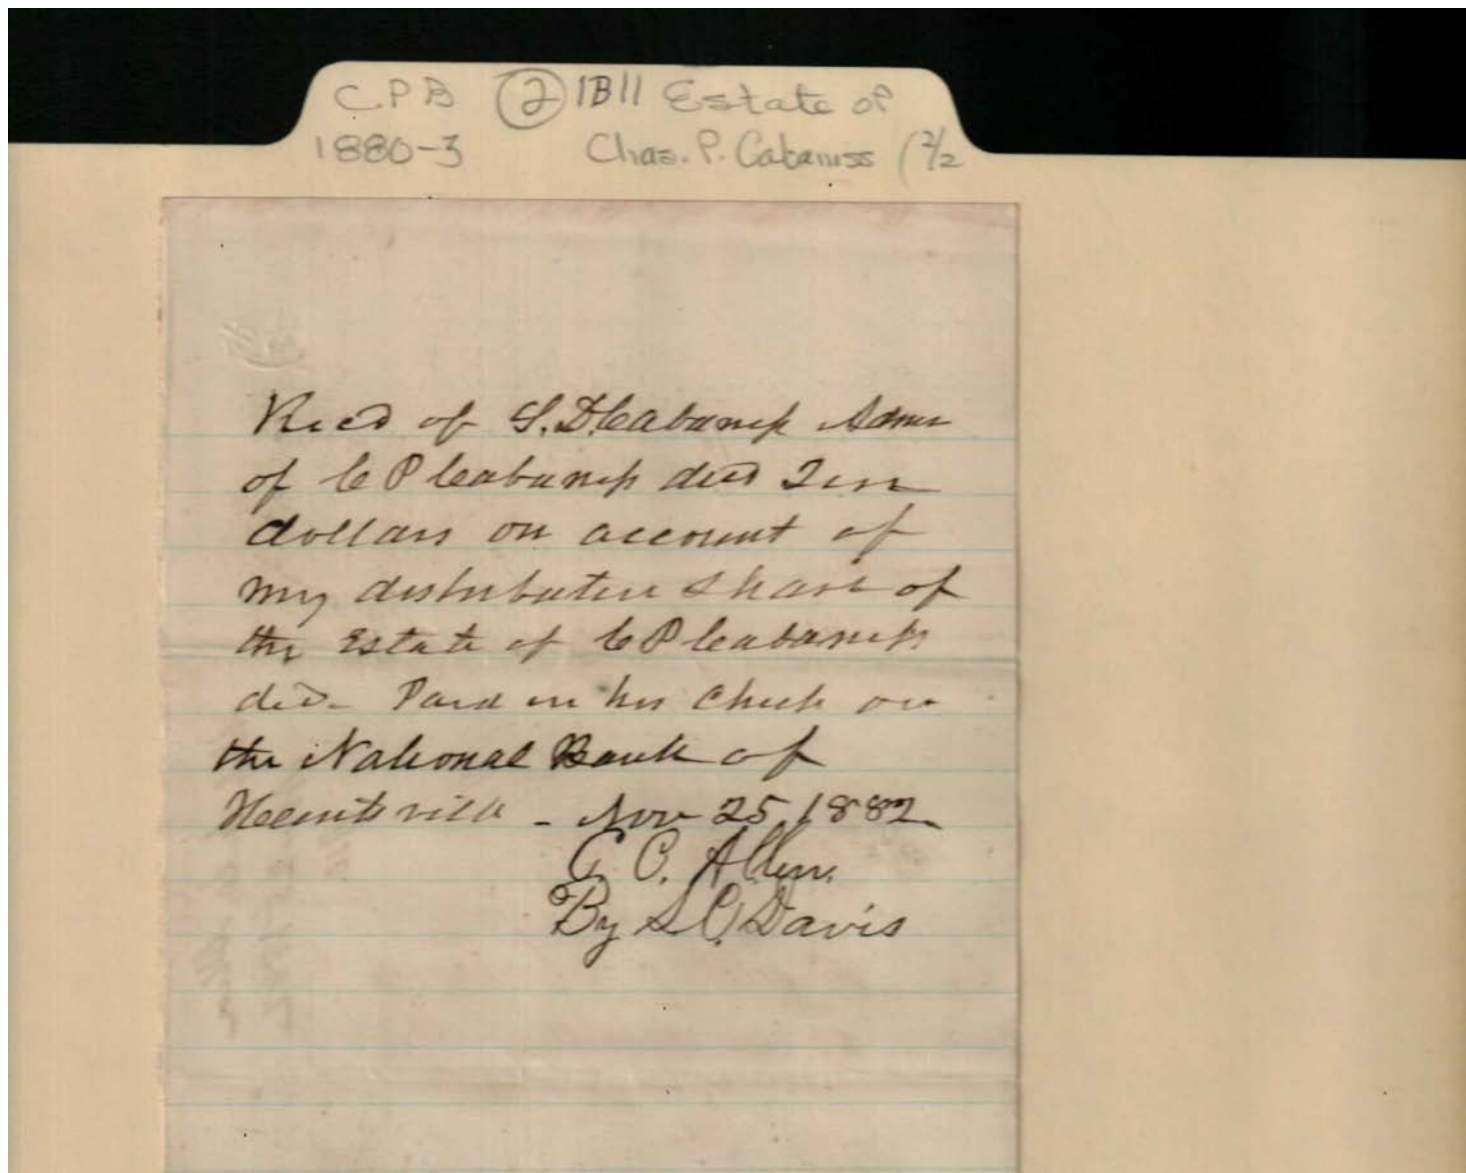 CPB ② 1B11 Estate of
1880-3 Chas. P. Cabaniss (2/2
Recd of S. D. Cabaniss Admr
of C P Cabaniss decd Ten
dollars on account of
my distributive share of
the Estate of C P Cabaniss
decd - Paid in his check on
the National Bank of
Huntsville - Nov 25 1882.
C. C. Allen.
By S C. Davis